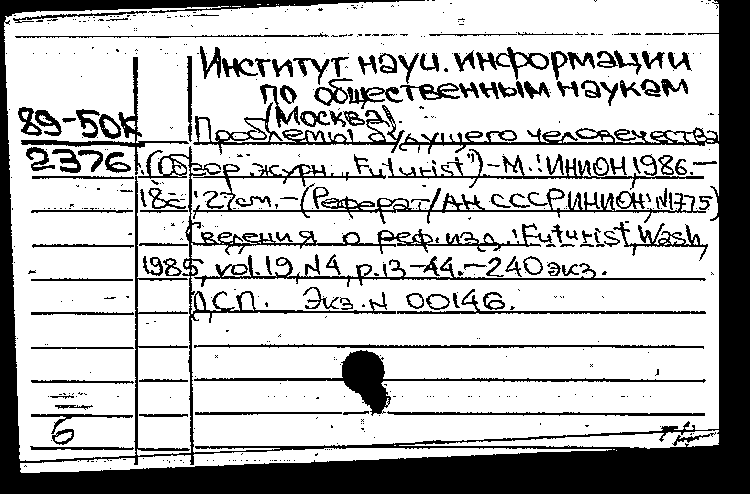 Институт науч. информации
по общественным наукам
(Москва).
89-50К
Проблемы будущего человечества
2376
(Обзор журн. „Futurist")-М.:ИНИОН,1986.-
18с.;27см.-(Реферат/АН СССР,ИНИОН;N1775)
Сведения о реф.изд.:Futurist,Wash,
1985,vol.19,N4,p.13-44.-240экз.
ДСП. Экз.N 00146.
6